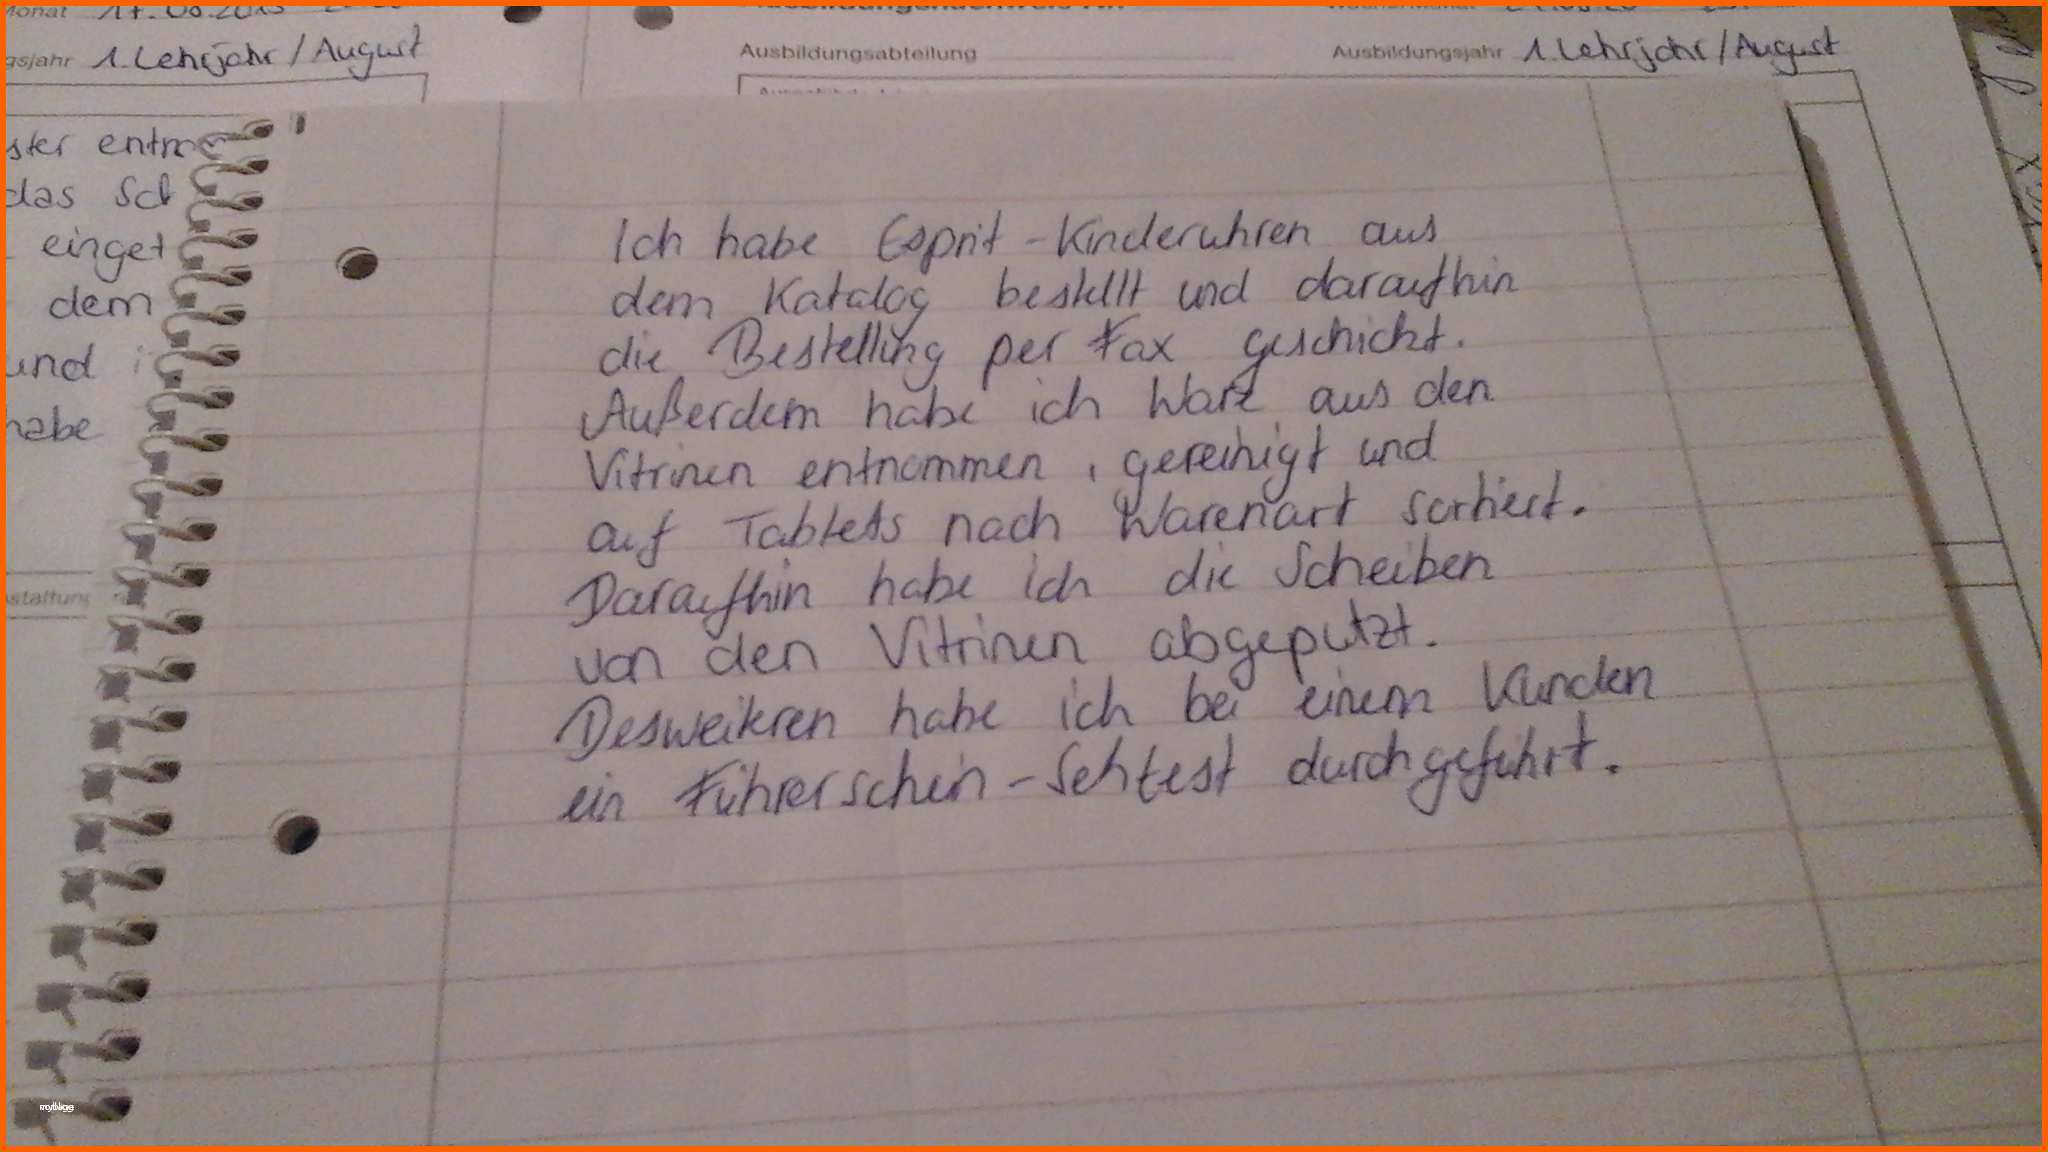 Monat 17.08.2013
Ausbildungsabteilung
Ausbildungsjahr 1. Lehrjahr / August
gsjahr 1. Lehrjahr / August
ster
das
einget
dem
und
habe
staltung
Ich habe Esprit - Kinderuhren aus
dem Katalog bestellt und daraufhin
die Bestellung per Fax geschickt.
Außerdem habe ich Ware aus den
Vitrinen entnommen, gereinigt und
auf Tabletts nach Warenart sortiert.
Daraufhin habe ich die Scheiben
von den Vitrinen abgeputzt.
Desweiteren habe ich bei einem Kunden
ein Führerschein - Sehtest durchgeführt.